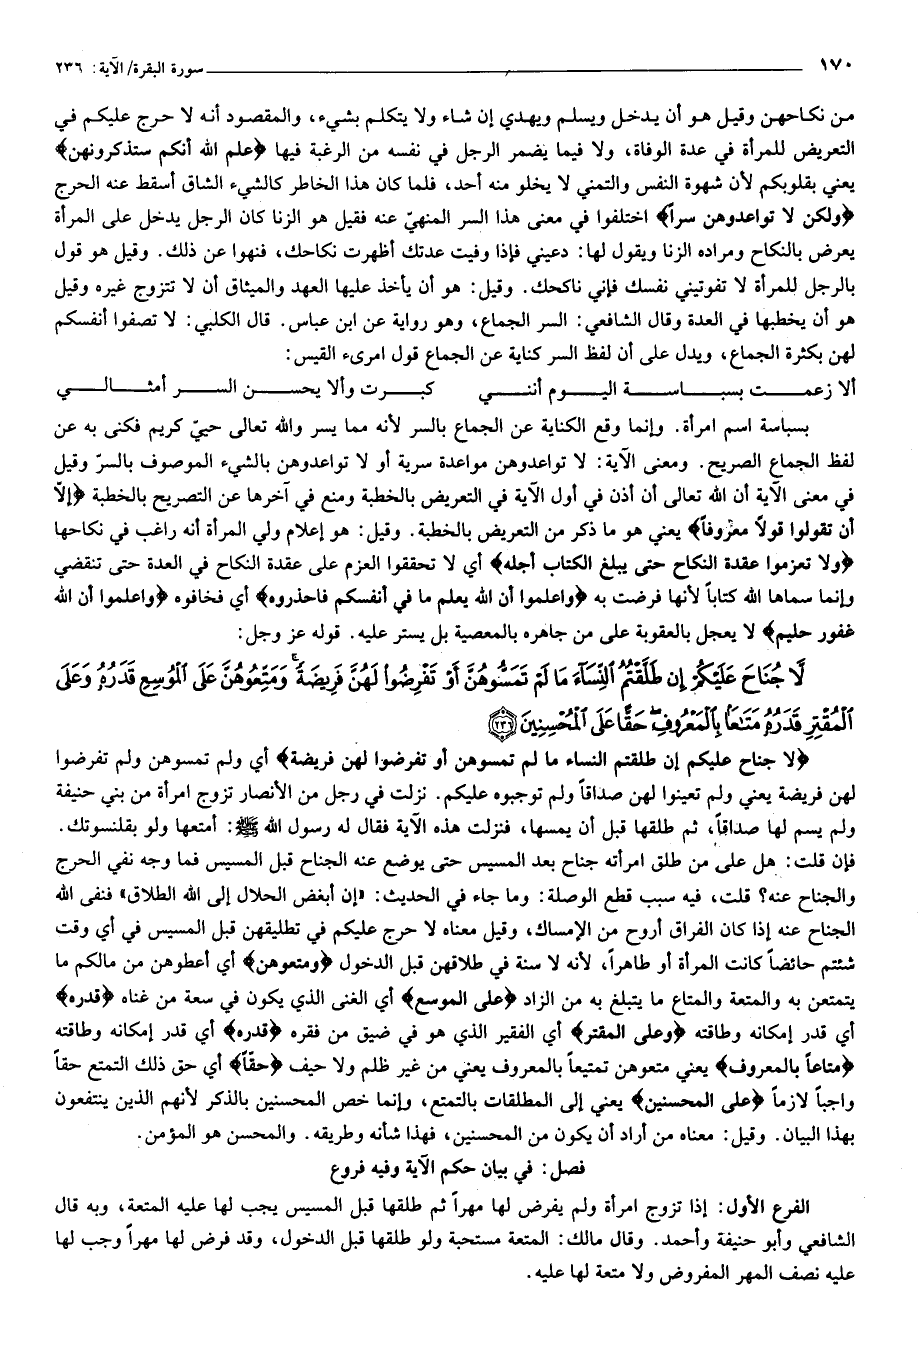 ١٧٠ سورة البقرة/ الآية: ٢٣٦
من نكاحهن وقيل هو أن يدخل ويسلم ويهدي إن شاء ولا يتكلم بشيء، والمقصود أنه لا حرج عليكم في
التعريض للمرأة في عدة الوفاة، ولا فيما يضمر الرجل في نفسه من الرغبة فيها ﴿علم الله أنكم ستذكرونهن﴾
يعني بقلوبكم لأن شهوة النفس والتمني لا يخلو منه أحد، فلما كان هذا الخاطر كالشيء الشاق أسقط عنه الحرج
﴿ولكن لا تواعدوهن سراً﴾ اختلفوا في معنى هذا السر المنهيّ عنه فقيل هو الزنا كان الرجل يدخل على المرأة
يعرض بالنكاح ومراده الزنا ويقول لها: دعيني فإذا وفيت عدتك أظهرت نكاحك، فنهوا عن ذلك. وقيل هو قول
بالرجل للمرأة لا تفوتيني نفسك فإني ناكحك. وقيل: هو أن يأخذ عليها العهد والميثاق أن لا تتزوج غيره وقيل
هو أن يخطبها في العدة وقال الشافعي: السر الجماع، وهو رواية عن ابن عباس. قال الكلبي: لا تصفوا أنفسكم
لهن بكثرة الجماع، ويدل على أن لفظ السر كناية عن الجماع قول امرىء القيس:
ألا زعمت بسباسة اليوم أنني كبرت وألا يحسن السر أمثالي
بسباسة اسم امرأة. وإنما وقع الكناية عن الجماع بالسر لأنه مما يسر والله تعالى حييّ كريم فكنى به عن
لفظ الجماع الصريح. ومعنى الآية: لا تواعدوهن مواعدة سرية أو لا تواعدوهن بالشيء الموصوف بالسرّ وقيل
في معنى الآية أن الله تعالى أن أذن في أول الآية في التعريض بالخطبة ومنع في آخرها عن التصريح بالخطبة ﴿إلاّ
أن تقولوا قولاً معزوفاً﴾ يعني هو ما ذكر من التعريض بالخطبة. وقيل: هو إعلام ولي المرأة أنه راغب في نكاحها
﴿ولا تعزموا عقدة النكاح حتى يبلغ الكتاب أجله﴾ أي لا تحققوا العزم على عقدة النكاح في العدة حتى تنقضي
وإنما سماها الله كتاباً لأنها فرضت به ﴿واعلموا أن الله يعلم ما في أنفسكم فاحذروه﴾ أي فخافوه ﴿واعلموا أن الله
غفور حليم﴾ لا يعجل بالعقوبة على من جاهره بالمعصية بل يستر عليه. قوله عز وجل:
لَّا جُنَاحَ عَلَيْكُمْ إِن طَلَّقْتُمُ ٱلنِّسَآءَ مَا لَمْ تَمَسُّوهُنَّ أَوْ تَفْرِضُوا۟ لَهُنَّ فَرِيضَةً ۚ وَمَتِّعُوهُنَّ عَلَى ٱلْمُوسِعِ قَدَرُهُۥ وَعَلَى
ٱلْمُقْتِرِ قَدَرُهُۥ مَتَٰعًۢا بِٱلْمَعْرُوفِ ۖ حَقًّا عَلَى ٱلْمُحْسِنِينَ ٢٣٦
﴿لا جناح عليكم إن طلقتم النساء ما لم تمسوهن أو تفرضوا لهن فريضة﴾ أي ولم تمسوهن ولم تفرضوا
لهن فريضة يعني ولم تعينوا لهن صداقاً ولم توجبوه عليكم. نزلت في رجل من الأنصار تزوج امرأة من بني حنيفة
ولم يسم لها صداقاً، ثم طلقها قبل أن يمسها، فنزلت هذه الآية فقال له رسول الله ﷺ: أمتعها ولو بقلنسوتك.
فإن قلت: هل على من طلق امرأته جناح بعد المسيس حتى يوضع عنه الجناح قبل المسيس فما وجه نفي الحرج
والجناح عنه؟ قلت، فيه سبب قطع الوصلة: وما جاء في الحديث: «إن أبغض الحلال إلى الله الطلاق» فنفى الله
الجناح عنه إذا كان الفراق أروح من الإمساك، وقيل معناه لا حرج عليكم في تطليقهن قبل المسيس في أي وقت
شئتم حائضاً كانت المرأة أو طاهراً، لأنه لا سنة في طلاقهن قبل الدخول ﴿ومتعوهن﴾ أي أعطوهن من مالكم ما
يتمتعن به والمتعة والمتاع ما يتبلغ به من الزاد ﴿على الموسع﴾ أي الغنى الذي يكون في سعة من غناه ﴿قدره﴾
أي قدر إمكانه وطاقته ﴿وعلى المقتر﴾ أي الفقير الذي هو في ضيق من فقره ﴿قدره﴾ أي قدر إمكانه وطاقته
﴿متاعاً بالمعروف﴾ يعني متعوهن تمتيعاً بالمعروف يعني من غير ظلم ولا حيف ﴿حقّاً﴾ أي حق ذلك التمتع حقاً
واجباً لازماً ﴿على المحسنين﴾ يعني إلى المطلقات بالتمتع، وإنما خص المحسنين بالذكر لأنهم الذين ينتفعون
بهذا البيان. وقيل: معناه من أراد أن يكون من المحسنين، فهذا شأنه وطريقه. والمحسن هو المؤمن.
فصل: في بيان حكم الآية وفيه فروع
الفرع الأول: إذا تزوج امرأة ولم يفرض لها مهراً ثم طلقها قبل المسيس يجب لها عليه المتعة، وبه قال
الشافعي وأبو حنيفة وأحمد. وقال مالك: المتعة مستحبة ولو طلقها قبل الدخول، وقد فرض لها مهراً وجب لها
عليه نصف المهر المفروض ولا متعة لها عليه.